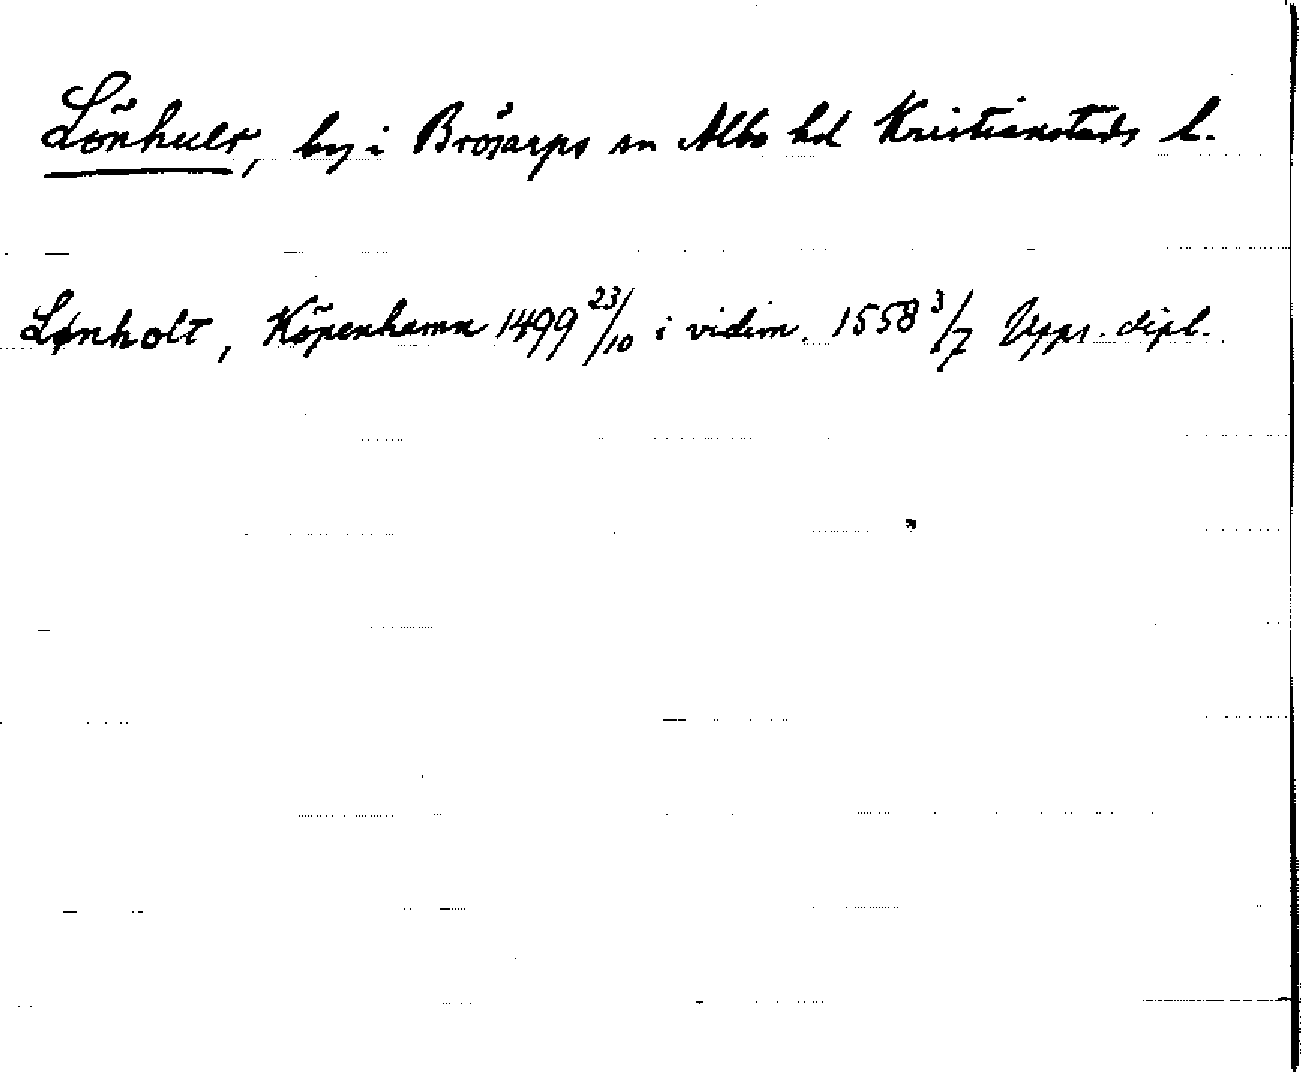 Lönhult, by i Brösarps sn Albo hd Kristianstads l.
Lønholt, Köpenhamn 1499 23/10 i vidim. 1558 3/7 Upps. dipl.